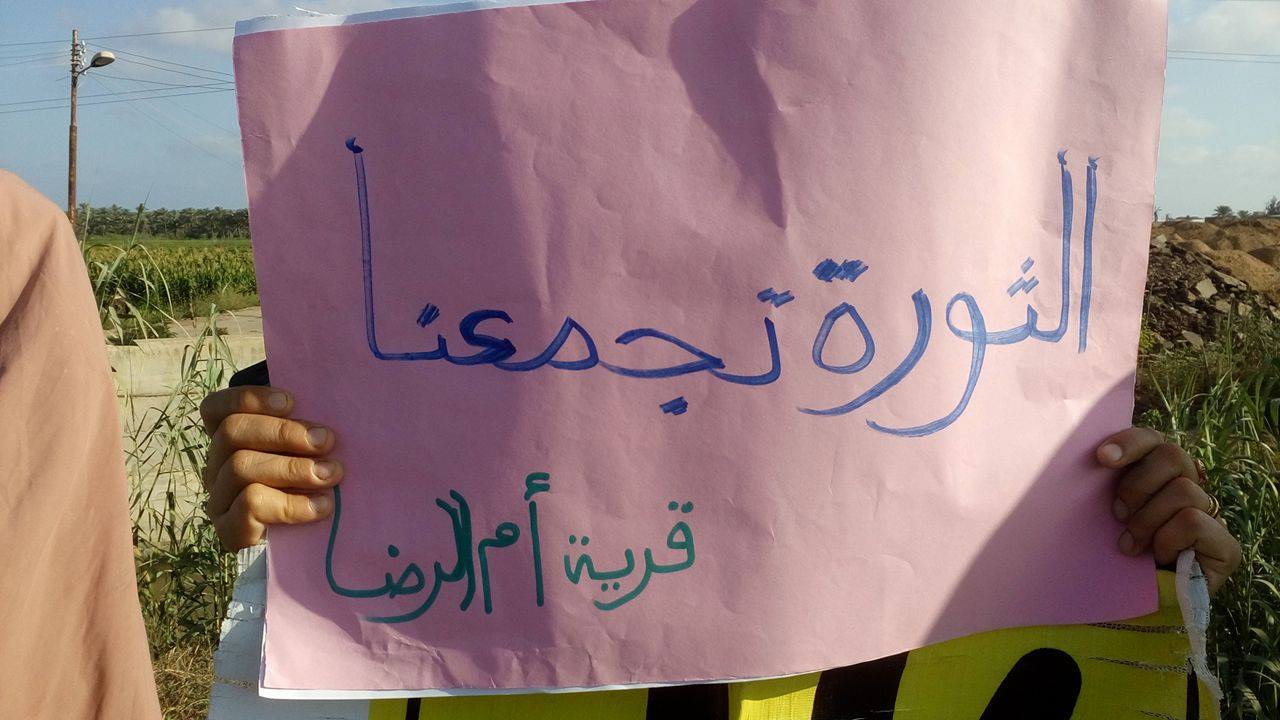 الثورة تجمعنا
قرية أم الرضا